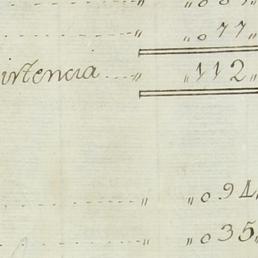 „ „ 077 „
istencia „ „ 112 „
„ „ 094 „
„ „ 035 „